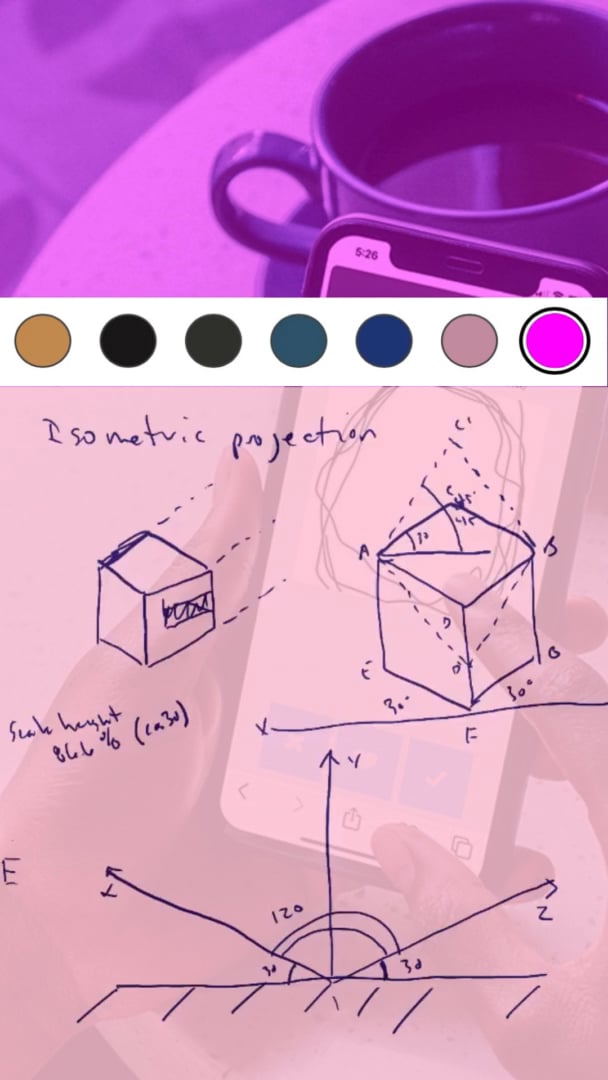 5:26
Isometric projection
C'
C 45°
45
A 30 B
D
D'
E G
30° 30°
X F
Scale height
86.6% (cos 30)
Y
E
X Z
120
30 30